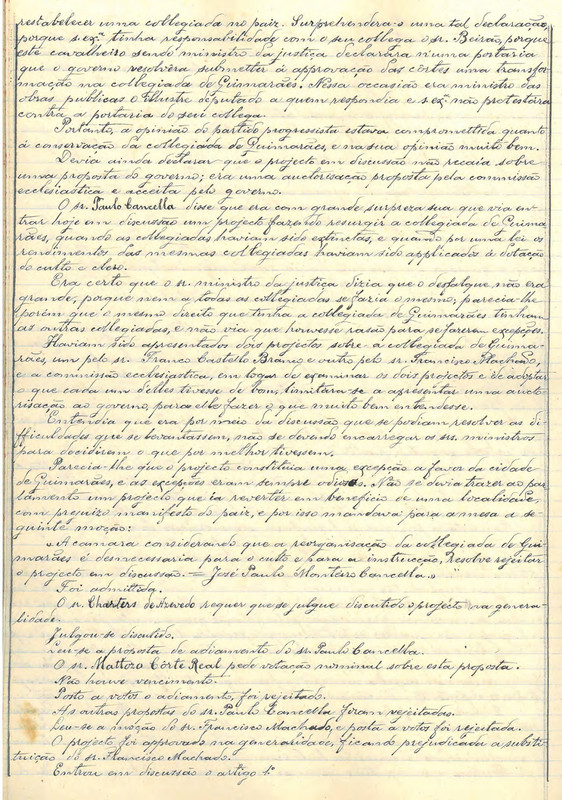 restabelecer uma collegiada no paiz. Surprehendera-o uma tal declaração,
porque s. ex.ª tinha responsabilidade com o seu collega o sr. Beirão, porque
este cavalheiro sendo ministro da justiça declarára n'uma portaria
que o governo resolvêra submetter á approvação das côrtes uma transfor-
mação na collegiada de Guimarães. Nessa occasião era ministro das
obras publicas o illustre deputado a quem respondia e s. ex.ª não protestára
contra a portaria do seu collega.
Portanto, a opinião do partido progressista estava compromettida quanto
á conservação da collegiada de Guimarães, e na sua opinião muito bem.
Devia ainda declarar que o projecto em discussão não recaía sobre
uma proposta do governo; era uma auctorisação proposta pela commissão
ecclesiastica e acceita pelo governo.
O sr. Paulo Cancella disse que era com grande surpreza sua que via en-
trar hoje em discussão um projecto fazendo resurgir a collegiada de Guima-
rães, quando as collegiadas haviam sido extinctas, e quando por uma lei os
rendimentos das mesmas collegiadas haviam sido applicados á dotação
do culto e clero.
Era certo que o sr. ministro da justiça dizia que o desfalque não era
grande, porque nem a todas as collegiadas se fazia o mesmo; parecia-lhe
porém que o mesmo direito que tinha a collegiada de Guimarães tinham
as outras collegiadas, e não via que houvesse rasão para se fazerem excepções.
Haviam sido apresentados dois projectos sobre a collegiada de Guima-
rães, um pelo sr. Franco Castello Branco e outro pelo sr. Francisco Machado,
e a commissão ecclesiastica, em logar de examinar os dois projectos e de adoptar
o que cada um d'elles tivesse de bom, limitára-se a apresentar uma aucto-
risação ao governo, para elle fazer o que muito bem entendesse.
Entendia que era por meio da discussão que se podiam resolver as di-
fficuldades que se levantassem, não se devendo encarregar os srs. ministros
para decidirem o que por melhor tivessem.
Parecia-lhe que o projecto constituia uma excepção a favor da cidade
de Guimarães, e as excepções eram sempre odiosas. Não se devia trazer ao par-
lamento um projecto que ia reverter em beneficio de uma localidade,
com prejuizo manifesto do paiz, e por isso mandava para a mesa a se-
guinte moção:
«A camara considerando que a reorganisação da collegiada de Gui-
marães é desnecessaria para o culto e para a instrucção, resolve rejeitar
o projecto em discussão. = José Paulo Monteiro Cancella.»
Foi admittida.
O sr. Charters de Azevedo requer que se julgue discutido o projecto na genera-
lidade.
Julgou-se discutido.
Leu-se a proposta de adiamento do sr. Paulo Cancella.
O sr. Mattozo Côrte Real pede votação nominal sobre esta proposta.
Não houve vencimento.
Posto a votos o adiamento, foi rejeitado.
As outras propostas do sr. Paulo Cancella foram rejeitadas.
Leu-se a moção do sr. Francisco Machado, e posta a votos foi rejeitada.
O projecto foi approvado na generalidade, ficando prejudicada a substi-
tuição do sr. Francisco Machado.
Entrou em discussão o artigo 1.º